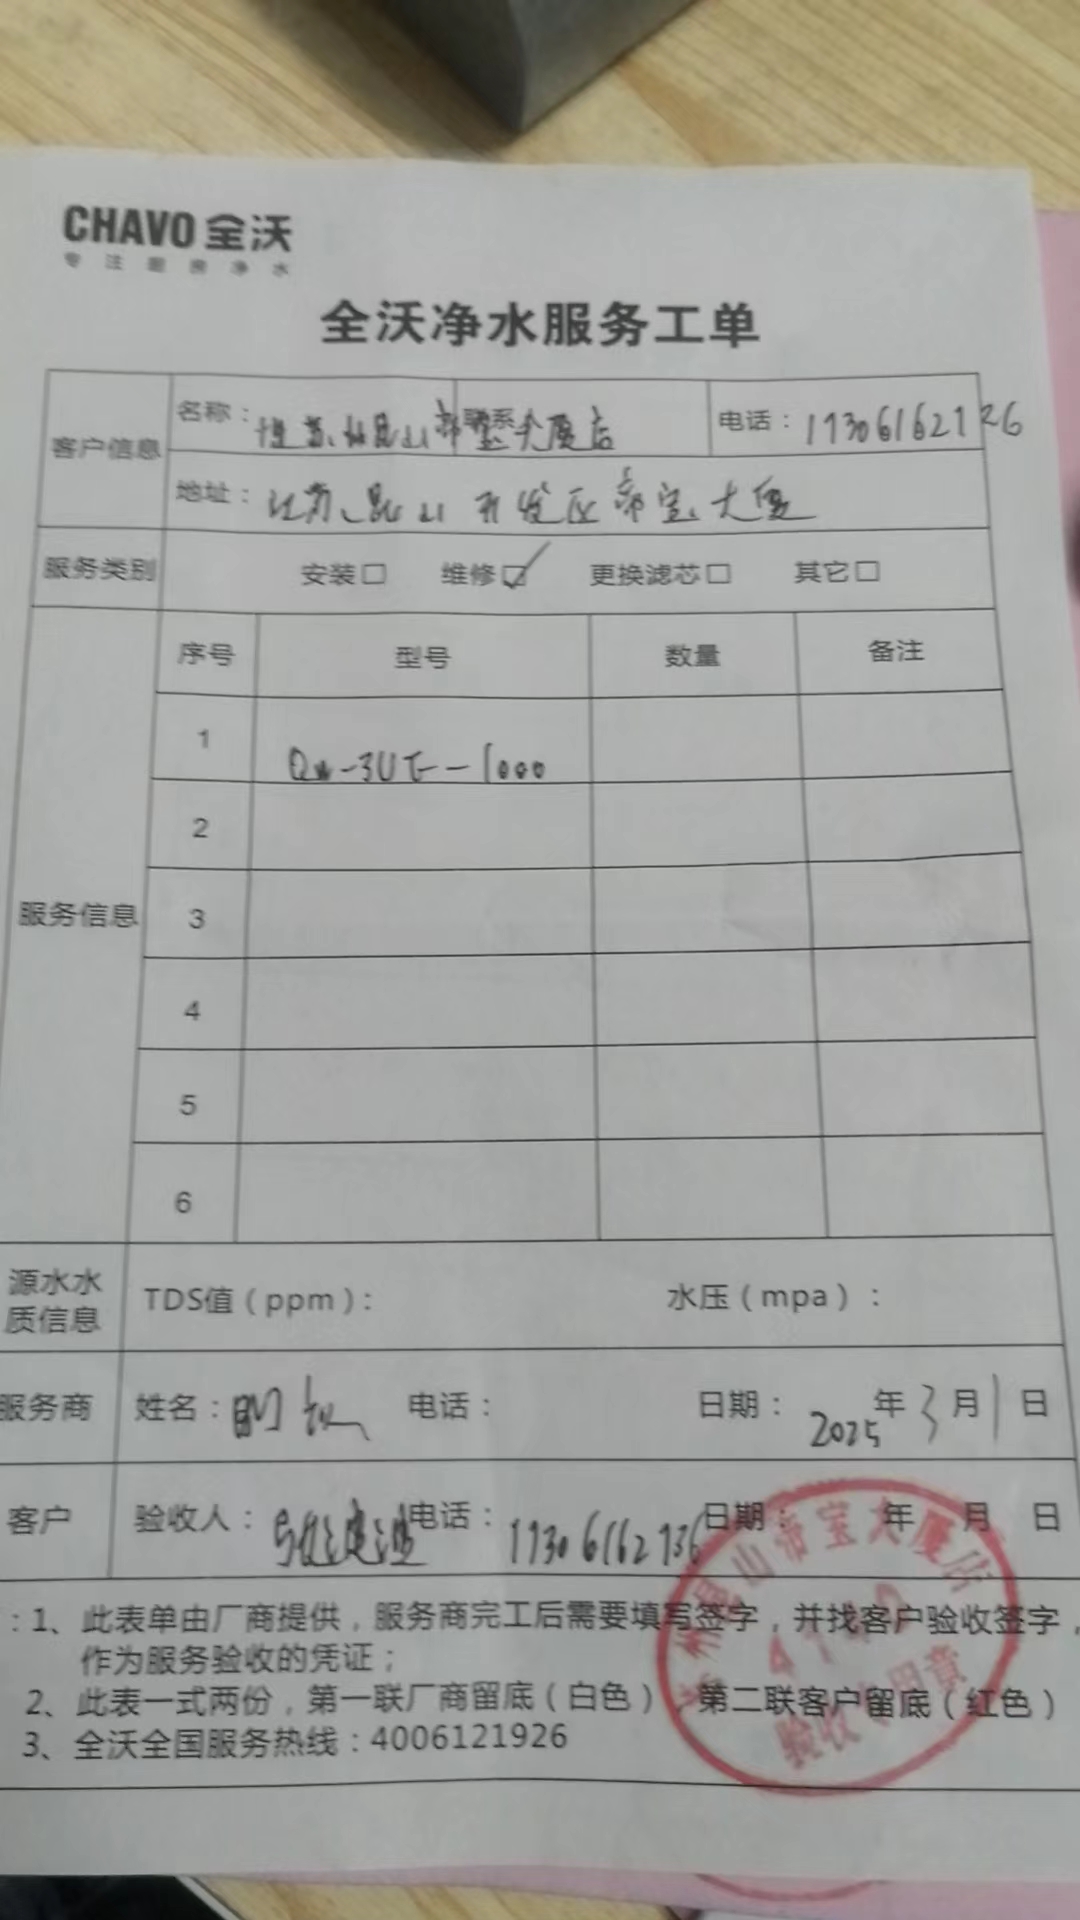 CHAVO 全沃
专注厨房净水
全沃净水服务工单
客户信息
名称： 苏 昆山 大厦店
联系
电话：
地址：江苏昆山开发区帝宝大厦
服务类别 安装□ 维修☑ 更换滤芯□ 其它□
服务信息
序号 型号 数量 备注
1 -1000
2
3
4
5
6
源水水质信息 TDS值（ppm）： 水压（mpa）：
服务商 姓名： 电话： 日期：2025年3月1日
客户 验收人： 电话： 日期： 年 月 日
：1、此表单由厂商提供，服务商完工后需要填写签字，并找客户验收签字，
作为服务验收的凭证；
2、此表一式两份，第一联厂商留底（白色），第二联客户留底（红色）
3、全沃全国服务热线：4006121926
昆山帝宝大厦店
验收 用章